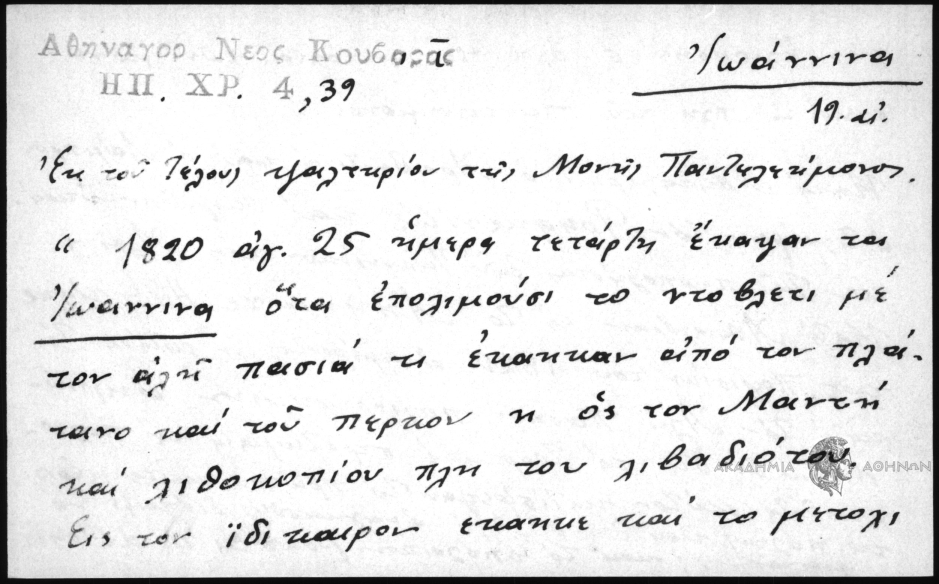 Αθηναγορ Νεος Κουβαρᾶς
ΗΠ. ΧΡ. 4, 39
Ἰωάννινα
19. αἰ.
Ἐκ τοῦ τέλους ψαλτηρίου τῆς Μονῆς Παντελεήμονος.
“ 1820 ἀγ. 25 ἡμερα τετάρτη ἔκαψαν τα
Ἰωαννινα ὅτα ἐπολιμούσι το ντοβλετι μέ
τον ἀλῆ πασιά τι ἐκαηκαν ἀπό τον πλά-
τανο καί τοῦ περκον η ὁς τον Μαντή
καί λιθοκοπίου πλη του λιβαδιότου.
Εις τον ϊδι καιρον εκαηκε καί το μετοχι
ΑΚΑΔΗΜΙΑ ΑΘΗΝΩΝ